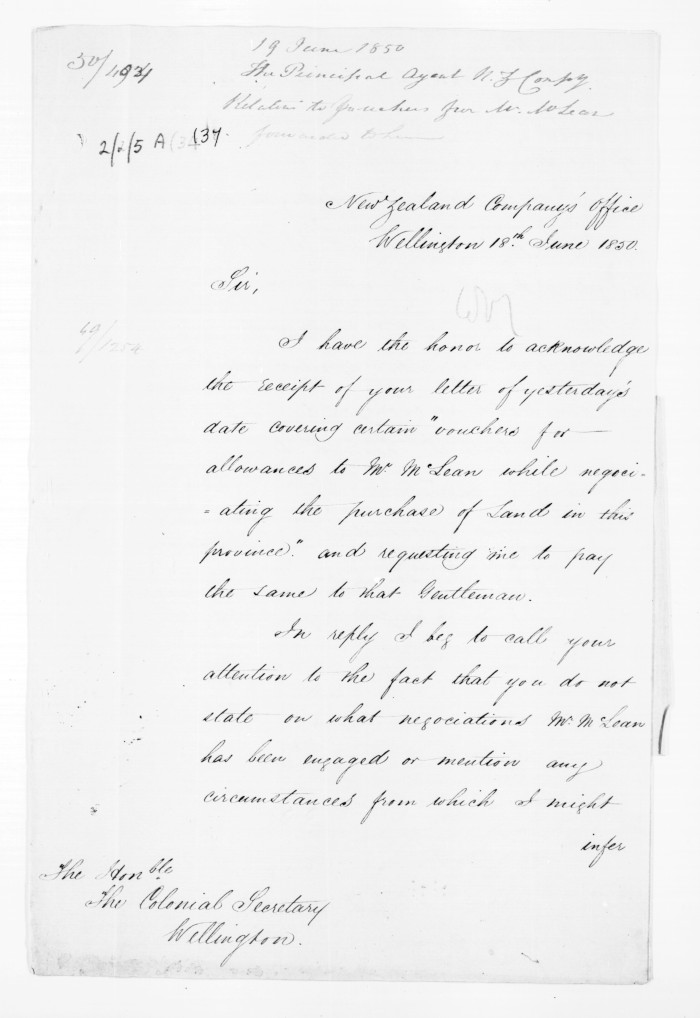 19 June 1850
50/494
The Principal Agent N. Z. Compy.
Relative to Vouchers for Mr. McLean
forwarded to him
2/2/5 A (34 (37.
New Zealand Company's Office
Wellington 18th. June 1850.
Sir,
I have the honor to acknowledge
the receipt of your letter of yesterday's
date covering certain "vouchers for
allowances to Mr. McLean while negoci-
=ating the purchase of Land in this
province". and requesting me to pay
the same to that Gentleman.
In reply I beg to call your
attention to the fact that you do not
state on what negociations Mr. McLean
has been engaged or mention any
circumstances from which I might
infer
The Honble
The Colonial Secretary
Wellington.